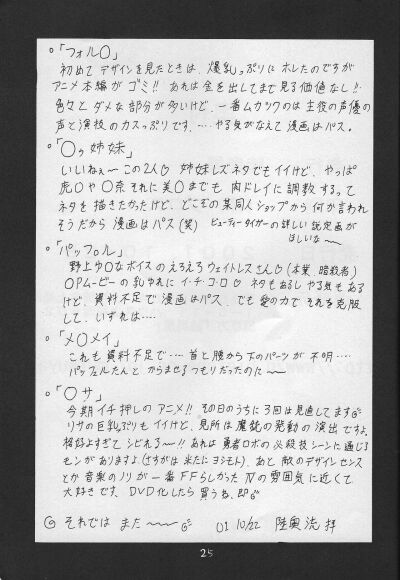 。「フォル〇」
初めてデザインを見たときは、爆乳っぷりにホレたのですが
アニメ本編がゴミ!! あれは金を出してまで見る価値なし!!
色々とダメな部分が多いけど、一番ムカツクのは主役の声優の
声と演技のカスっぷりです、…やる気がなえて漫画はパス。
。「〇ッ姉妹」
いいねぇ〜この2人♡ 姉妹レズネタでもイイけど、やっぱ
虎〇や〇奈それに美〇までも 肉ドレイに調教するって
ネタを描きたかったけど、どこぞの某同人ショップから何か言われ
そうだから漫画はパス(笑) ビューティータイガーの詳しい設定画が
ほしいな〜
。「パッフ〇ル」
野上ゆ〇なボイスのえろえろウェイトレスさん♡(本業 暗殺者)
OPムービーの乳ゆれにイ・チ・コ・ロ♡ ネタもあるしやる気もある
けど、資料不足で漫画はパス、でも愛の力でそれを克服
して、いずれは……
。「メ〇メイ」
これも資料不足で…… 首と腰から下のパーツが不明……
パッフェルたんとからませるつもりだったのに〜
。「〇サ」
今期イチ押しのアニメ!! その日のうちに3回は見直してます
リサの巨乳ぷりもイイけど、見所は魔銃の発動の演出ですよ
格好よすぎてシビれる〜!! あれは勇者ロボの必殺技シーンに通じる
モンがありますよ(さすがは米たにヨシトモ)、あと敵のデザインセンス
とか音楽のノリが一番FFらしかったⅣの雰囲気に近くて
大好きです、DVD化したら買うね、即
それでは また〜〜 01 10/22 陸奥流 拝
25